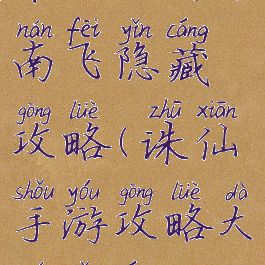 nán fēi yǐn cáng
南飞隐藏
gōng lüè zhū xiān
攻略(诛仙
shǒu yóu gōng lüè dà
手游攻略大